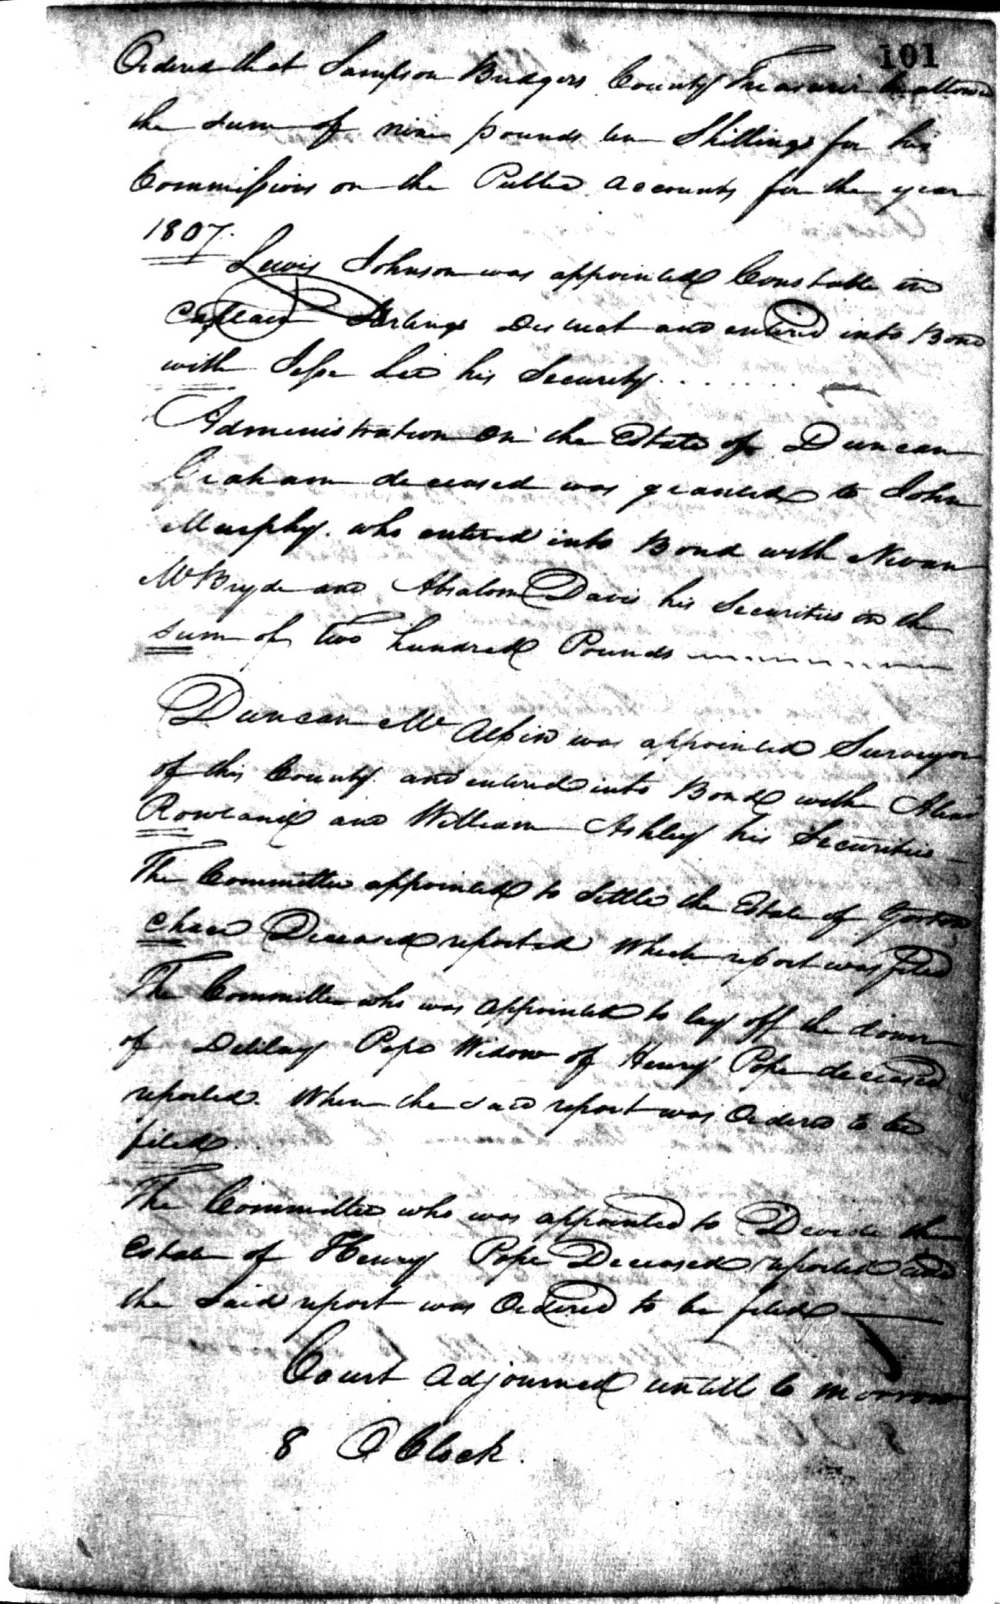 101
Ordered that Sampson Bridgers County Treasurer be allowed
the sum of nine pounds ten Shillings for his
Commissions on the Public accounts for the year
1807.
Lewis Johnson was appointed Constable in
Captain District and entered into Bond
with Jesse Lee his Security
Administration on the Estate of Duncan
Graham deceased was granted to John
Murphy. who entered into Bond with
McBryde and Absalom Davis his Securities in the
sum of Two hundred Pounds
Duncan Mc Alpin was appointed Surveyor
of this County and entered into Bond with
Rowland and William Ashley his Securities
The Committee appointed to Settle the Estate of
Deceased reported Which report was filed
The Committee who was appointed to lay off the dower
of Delilay Pope Widow of Henry Pope deceased
reported. When the said report was Ordered to be
filed.
The Committee who was appointed to Devide the
Estate of Henry Pope Deceased reported and
the Said report was Ordered to be filed
Court adjourned untill to morrow
8 O Clock.